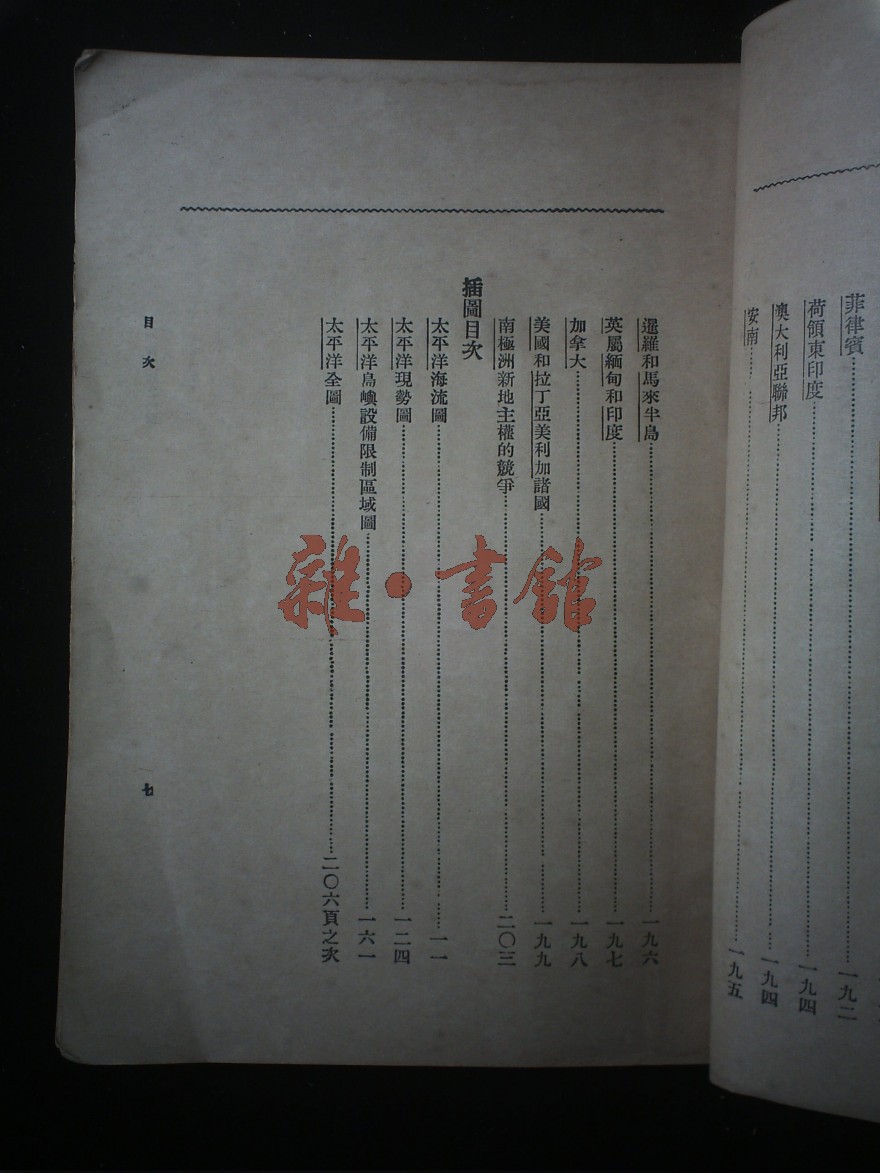 菲律賓……一九二
荷領東印度……一九四
澳大利亞聯邦……一九四
安南……一九五
暹羅和馬來半島……一九六
英屬緬甸和印度……一九七
加拿大……一九八
美國和拉丁亞美利加諸國……一九九
南極洲新地主權的競爭……二〇三
插圖目次
太平洋海流圖……一一
太平洋現勢圖……一二四
太平洋島嶼設備限制區域圖……一六一
太平洋全圖……二〇六頁之次
目次
七
雜·書館